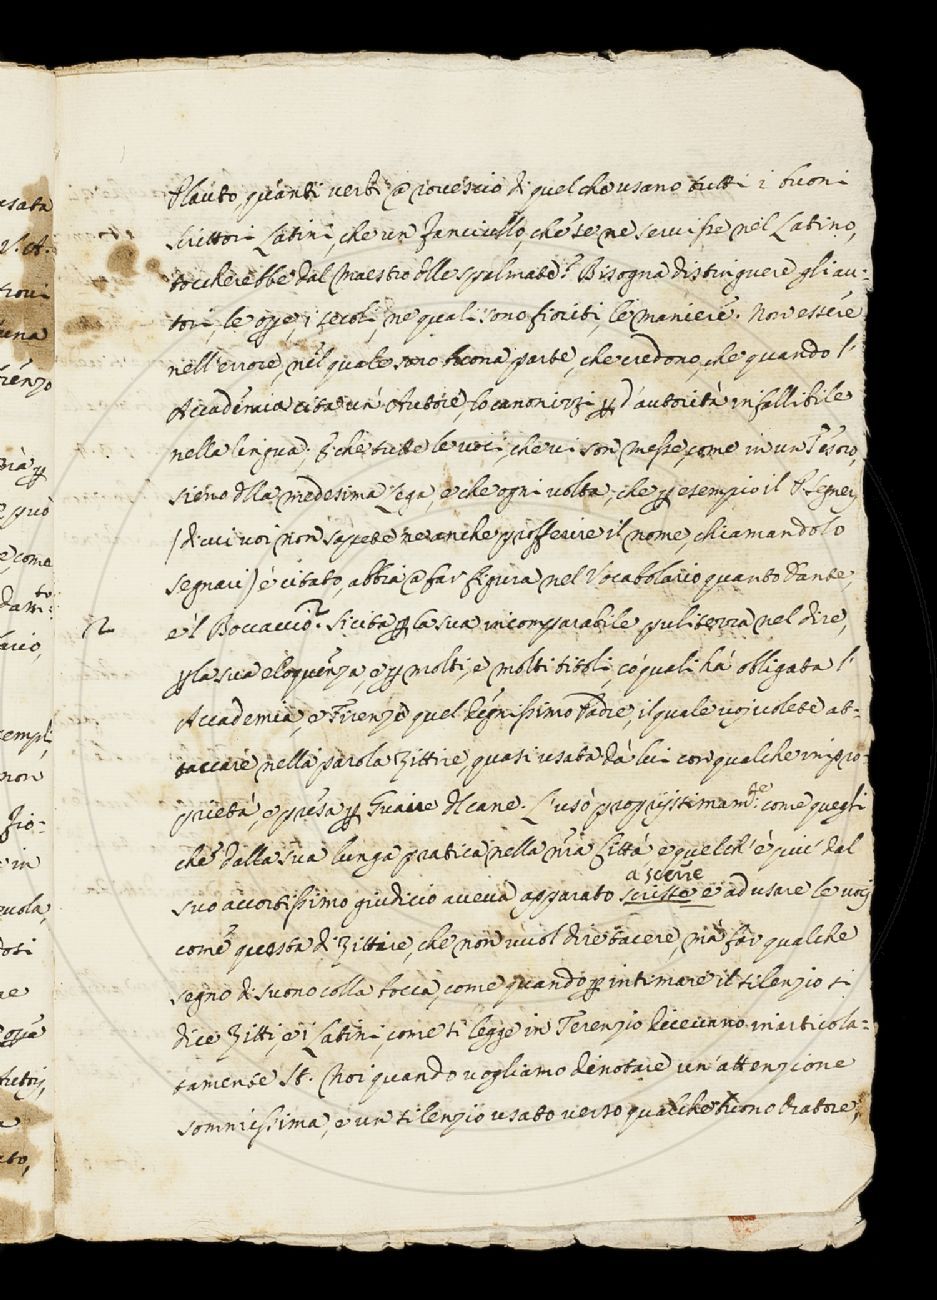 Plauto, quanti verbi a rovescio di quel che usano tutti i buoni
scrittori Latini, che un fanciullo, che se ne servisse nel Latino,
toccherebbe dal Maestro dlle spalmate? Bisogna distinguere gli au-
tori, le opre, i secoli, ne quali sono fioriti, le maniere. Non essere
nell'errore, nel quale sono buona parte, che credono, che quando l'
Accademia cita un Autore, lo canonizzi p d'autorità infallibile
nella lingua, e che tutte le voci, che vi son messe, come in un Tesoro,
sieno dlla medesima lega, e che ogni volta, che p esempio il P. Segneri
(di cui voi non sapete neanche profferire il nome, chiamandolo
Segnari) è citato, abbia a far figura nel Vocabolario quanto Dante,
e 'l Boccaccio? Si cita p la sua incomparabile pulitezza nel dire,
p la sua eloquenza, e p molti, e molti titoli, co' quali há obligata l'
Accademia, e Firenze quel degnissimo Padre, il quale voi volete at-
taccare nella parola Zittire, quasi usata da lui con qualche impro-
prietà, e presa p Guaire dl cane. L'usò propriissimamte: come quegli
che dalla sua lunga pratica nella nra Città, e quel ch'è piu' dal
suo accortissimo giudicio aveva apparato scritto e ad usare le voci
a scriv̄re
come questa di Zittire, che non vuol dire tacere, mà far qualche
segno di suono colla bocca, come quando p intimare il silenzio si
dice Zitti, e i Latini, come si legge in Terenzio dicevano inarticola-
tamente St. Noi quando vogliamo denotare un'attenzione
sommissima, e un silenzio usato verso qualche buono Oratore,